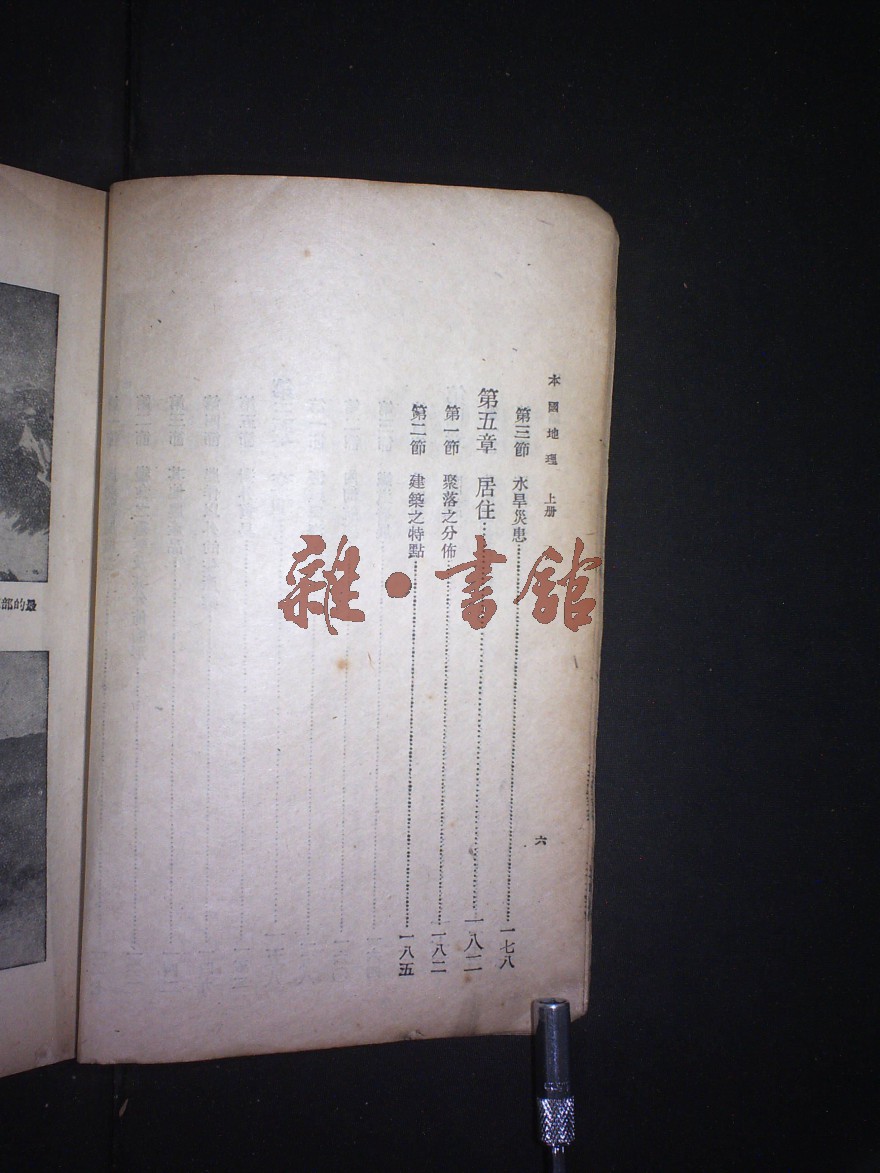 本國地理 上册
第三節 水旱災患……一七八
第五章 居住……一八二
第一節 聚落之分佈……一八二
第二節 建築之特點……一八五
六
雜·書館
部的最